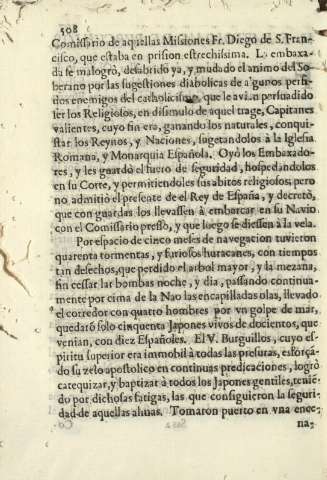 508
Comissario de aquellas Missiones Fr. Diego de S. Fran-
cisco, que estaba en prision estrechissima. L. embaxa-
da se malogrò, desabrido ya, y mudado el animo del So-
berano por las sugestiones diabolicas de algunos perfi-
dos enemigos del catholicismo, que le avian persuadido
ser los Religiosos, en disimulo de aquel trage, Capitanes
valientes, cuyo fin era, ganando los naturales, conqui-
star los Reynos, y Naciones, sugetandolos à la Iglesia
Romana, y Monarquia Española. Oyò los Embaxado-
res, y les guardò el fuero de seguridad, hospedandolos
en su Corte, y permitiendoles sus abitos religiosos; pero
no admitiò el presente de el Rey de España, y decretò,
que con guardas los llevassen à embarcar en su Navio
con el Comissario presso, y que luego se diessen à la vela.
Por espacio de cinco meses de navegacion tuvieron
quarenta tormentas, y furiosos huracanes, con tiempos
tan desechos, que perdido el arbol mayor, y la mezana,
sin cessar las bombas noche, y dia, passando continua-
mente por cima de la Nao las encapilladas olas, llevado
el corredor con quatro hombres por vn golpe de mar,
quedarõ solo cinquenta Japones vivos de docientos, que
venian, con diez Españoles. El V. Burguillos, cuyo es-
piritu superior era immobil à todas las presuras, esforçã-
do su zelo apostolico en continuas predicaciones, logrò
catequizar, y baptizar à todos los Japones gentiles, tenie-
do por dichosas fatigas, las que consiguieron la seguri-
dad de aquellas almas. Tomaron puerto en vna ence-
na-